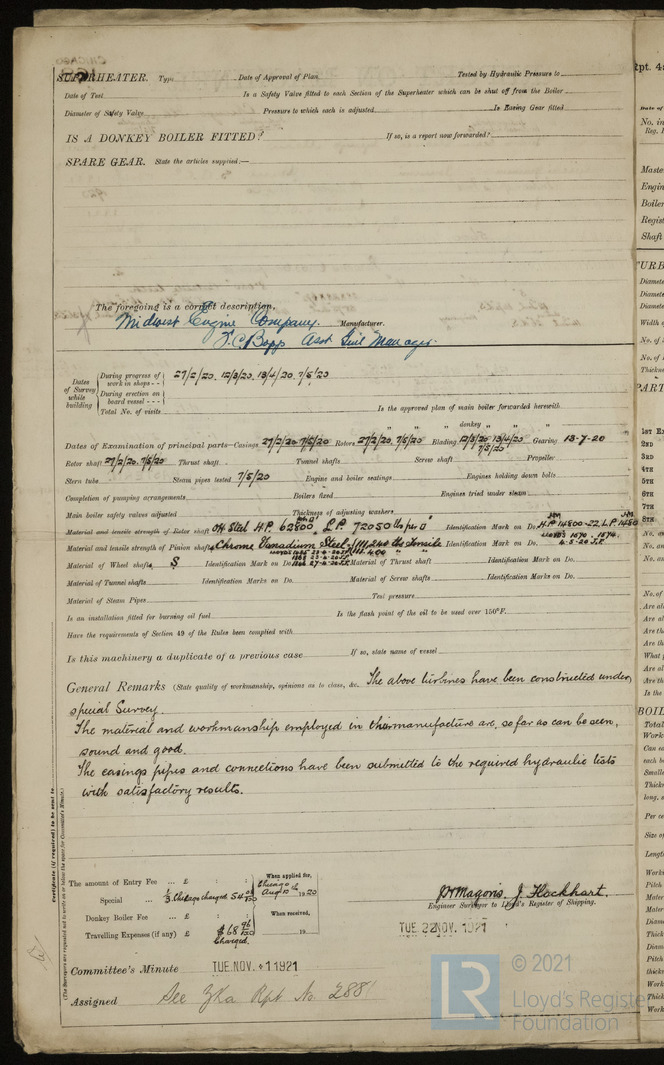 SUPERHEATER. Type Date of Approval of Plan Tested by Hydraulic Pressure to
Date of Test Is a Safety Valve fitted to each Section of the Superheater which can be shut off from the Boiler
Diameter of Safety Valve Pressure to which each is adjusted Is Easing Gear fitted
IS A DONKEY BOILER FITTED? If so, is a report now forwarded?
SPARE GEAR. State the articles supplied:—
The foregoing is a correct description,
Midwest Engine Company. Manufacturer.
F.C. Bopp Asst Genl Manager.
Dates of Survey while building
During progress of work in shops - - 27/2/20. 12/3/20. 13/4/20. 7/5/20
During erection on board vessel - - -
Total No. of visits Is the approved plan of main boiler forwarded herewith
" " donkey " "
Dates of Examination of principal parts—Casings 27/2/20. 7/5/20 Rotors 27/2/20. 7/5/20 Blading 12/3/20 13/4/20 7/5/20 Gearing 13-7-20
Rotor shaft 27/2/20. 7/5/20 Thrust shaft Tunnel shafts Screw shaft Propeller
Stern tube Steam pipes tested 7/5/20 Engine and boiler seatings Engines holding down bolts
Completion of pumping arrangements Boilers fixed Engines tried under steam
Main boiler safety valves adjusted Thickness of adjusting washers
Material and tensile strength of Rotor shaft OH Steel H.P. 62800 L.P. 72050 lbs per □" Identification Mark on Do. H.P. 14800-22 L.P. 1450
Material and tensile strength of Pinion shaft Chrome Vanadium Steel 111,240 lbs Tensile Identification Mark on Do. LLOYDS 1670. 1674. 6-5-20 J.F.
Material of Wheel shafts S Identification Mark on Do. Material of Thrust shaft Identification Mark on Do.
Material of Tunnel shafts Identification Marks on Do. Material of Screw shafts Identification Marks on Do.
Material of Steam Pipes Test pressure
Is an installation fitted for burning oil fuel Is the flash point of the oil to be used over 150°F.
Have the requirements of Section 49 of the Rules been complied with
Is this machinery a duplicate of a previous case If so, state name of vessel
General Remarks (State quality of workmanship, opinions as to class, &c. The above turbines have been constructed under
special Survey.
The material and workmanship employed in their manufacture are, so far as can be seen,
sound and good.
The casings pipes and connections have been submitted to the required hydraulic tests
with satisfactory results.
Certificate (if required) to be sent to
(The Surveyors are requested not to write on or below the space for Committee's Minute.)
The amount of Entry Fee ... £ : : When applied for,
Special ... Chicago charged Chicago Aug 10th 1920
Donkey Boiler Fee ... £ : : When received,
Travelling Expenses (if any) £ $68 96/100 Charged. 19
J. Hockhart.
Engineer Surveyor to Lloyd's Register of Shipping.
TUE. 22 NOV. 1921
Committee's Minute TUE. NOV. 11921
Assigned See Rpt No. 288
© 2021
LR Lloyd's Register
Foundation
Rpt. 4